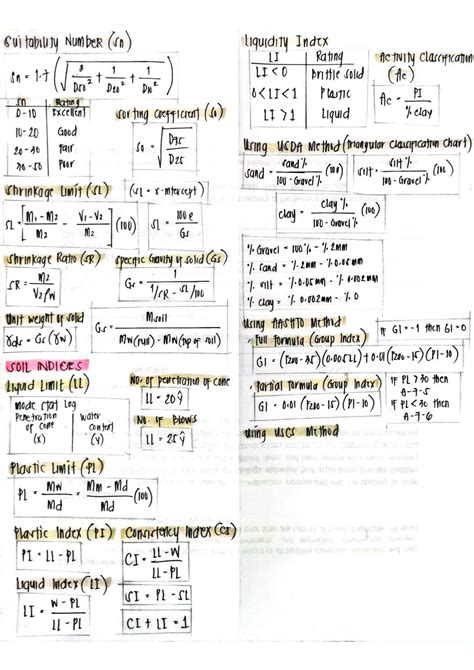 Suitability Number (Sn)
Sn = 1.7 (√(3/D50² + 1/D20² + 1/D10²))
Sn Rating
0-10 Excellent
10-20 Good
20-30 Fair
30-50 Poor
Sorting Coefficient (So)
So = √(D75/D25)
Shrinkage Limit (SL) (SL = x-intercept)
SL = [(M1 - M2)/M2 - (V1 - V2)/M2 (ρw)] (100)
SL = 100e/Gs
Shrinkage Ratio (SR)
SR = M2/(V2 ρw)
Specific Gravity of Solid (Gs)
Gs = 1/(1/SR - SL/100)
Unit weight of solid
γds = Gs (γw)
Gs = Msoil/(Mw(full) - Mw(top of soil)
SOIL INDICES
Liquid Limit (LL)
Mode Stat Log
Penetration of cone (x)
Water content (y)
No. of penetration of cone
LL = 20ŷ
No. of Blows
LL = 25ŷ
Plastic Limit (PL)
PL = Mw/Md = (Mm - Md)/Md (100)
Plastic Index (PI)
PI = LL - PL
Consistency Index (CI)
CI = (LL - W)/(LL - PL)
Liquid Index (LI)
LI = (W - PL)/(LL - PL)
SI = PL - SL
CI + LI = 1
Liquidity Index
LI Rating
LI < 0 Brittle solid
0 < LI < 1 Plastic
LI > 1 Liquid
Activity Classification (Ac)
Ac = PI/% clay
Using USDA Method (Triangular Classification Chart)
sand = sand %/(100 - Gravel %) (100)
silt = silt %/(100 - Gravel %) (100)
clay = clay %/(100 - Gravel %) (100)
% Gravel = 100% - % 2mm
% sand = % 2mm - % 0.05mm
% silt = % 0.05mm - % 0.002mm
% clay = % 0.002mm - % 0
Using AASHTO Method
• Full Formula (Group Index)
If GI = -1 then GI = 0
GI = (F200 - 35)(0.005LL) + 0.01(F200 - 15)(PI - 10)
• Partial Formula (Group Index)
GI = 0.01 (F200 - 15)(PI - 10)
If PL > 30 then
A-7-5
If PL < 30 then
A-7-6
Using USCS Method